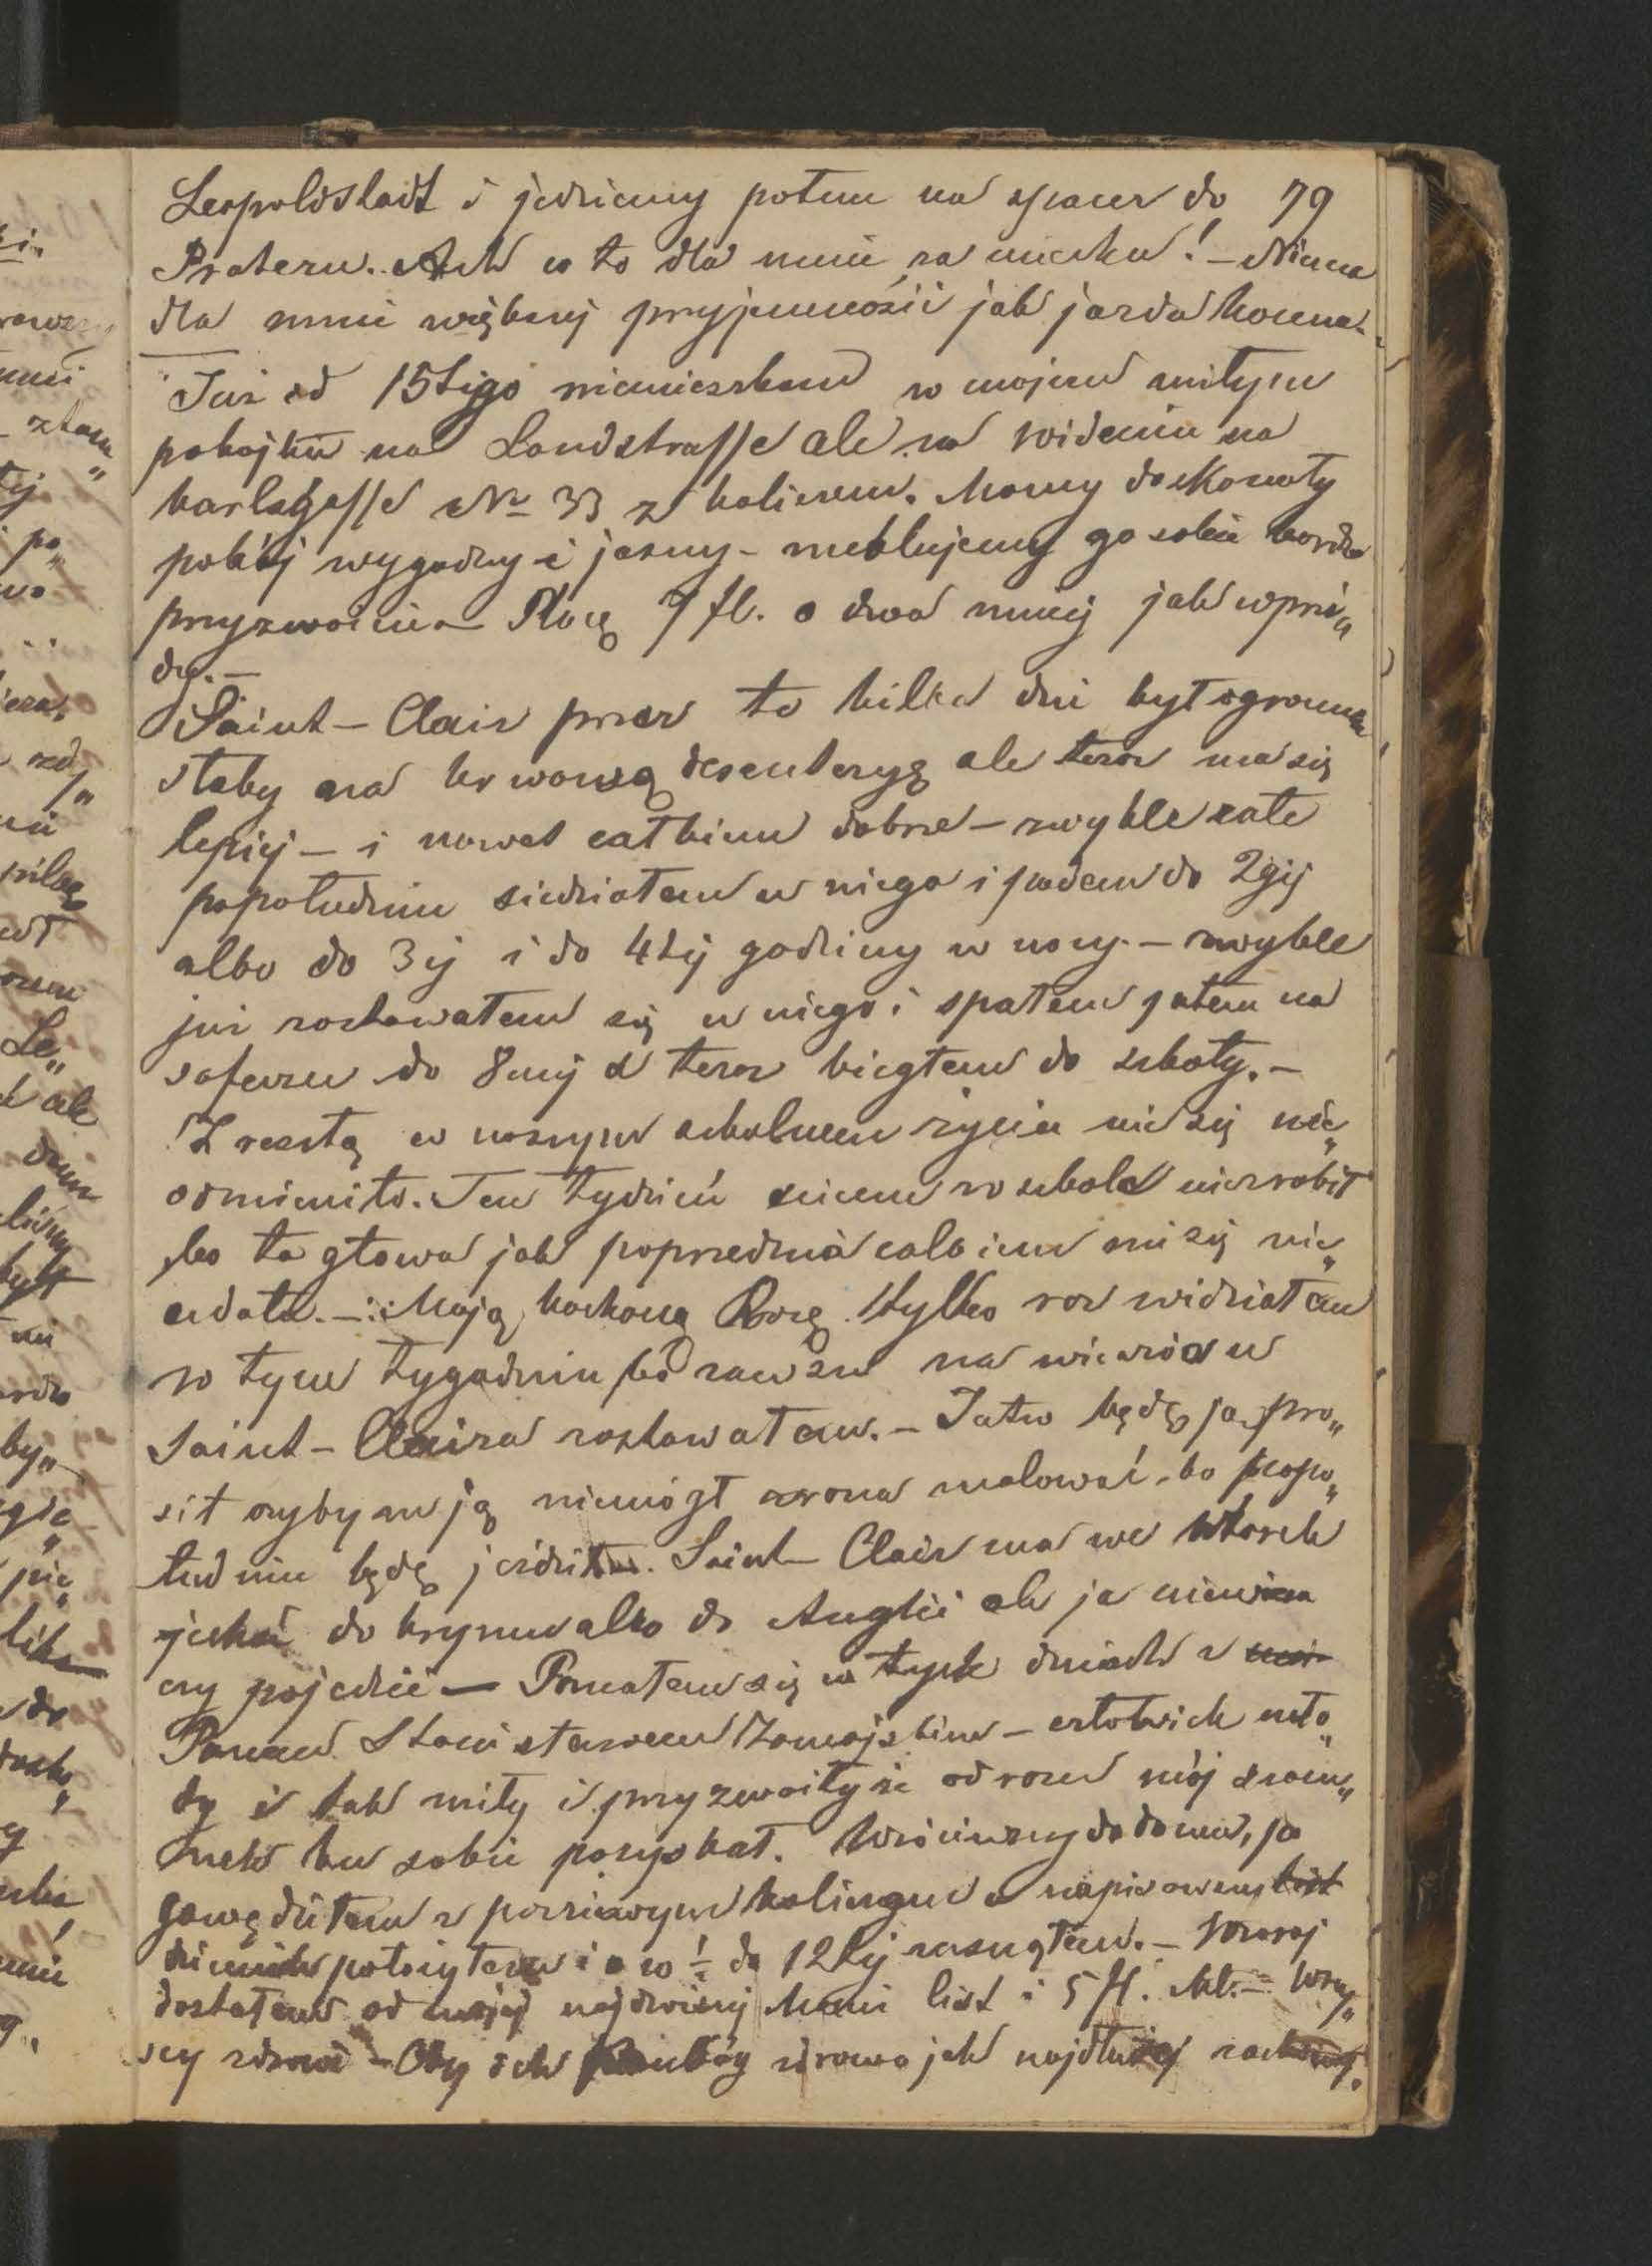 Leopoldstadt i jedziemy potem na spacer do 79
Prateru. Ach co to dla mnie za uciecha! – Niema
dla mnie większej przyjemności jak jazda konna.
Już od 15tego niemieszkam w mojem miłym
pokojku na Landstrasse ale na Wideniu na
Karlsgasse No 33 z Kolierem. Mamy doskonały
pokój wygodny i jasny – meblujemy go sobie bardzo
przyzwoicie – Płacę 7 fl. o dwa mniej jak wprzó„
dy. –
Saint – Clair przez te kilka dni był ogromnie
słaby na krwawą desenteryę ale teraz ma się
lepiej – i nawet całkiem dobrze – zwykle całe
popołudnie siedziałem u niego i potem do 2giej
albo do 3ej i do 4tej godziny w nocy. – zwykle
już zostawałem się u niego i spałem potem na
sofeczce do 8mej a teraz biegłem do szkoły. –
Zresztą w naszym szkolnem życiu nie się nie„
odmieniło. Ten tydzień niemam w szkole nie zrobił
bo ta głowa jak poprzednia całkiem mi się nie„
udała. – Moją kochaną Rozę tylko raz widziałem
w tym tygodniu bo zawsze na wieczór u
Saint – Claira zostawałem. – Jutro będę ją pro„
sił czybym ją niemógł zrana malować, bo popo„
łudniu będę jeździł. Saint – Clair ma we Wtorek
jechać do Krymu albo do Anglii ale ja niewiem
czy pojedzie – Poznałem się w tych dniach z
Panem Stanisławem Zamojskim – człowiek mło„
dy i tak miły i przyzwoity że od razu mój szacu„
nek ku sobie pozyskał. Wróciwszy do domu, po
gawędziłem z poczciwym Kolierem a napisawszy
dziennik położyłem i o w ½ do 12tej zasnąłem. – Wczoraj
dostałem od mojej najdroższej Mani list i 5 fl. Mk. – Wszy„
scy zdrowi – Oby ich Pan Bóg zdrowo jak najdłużej zachował.